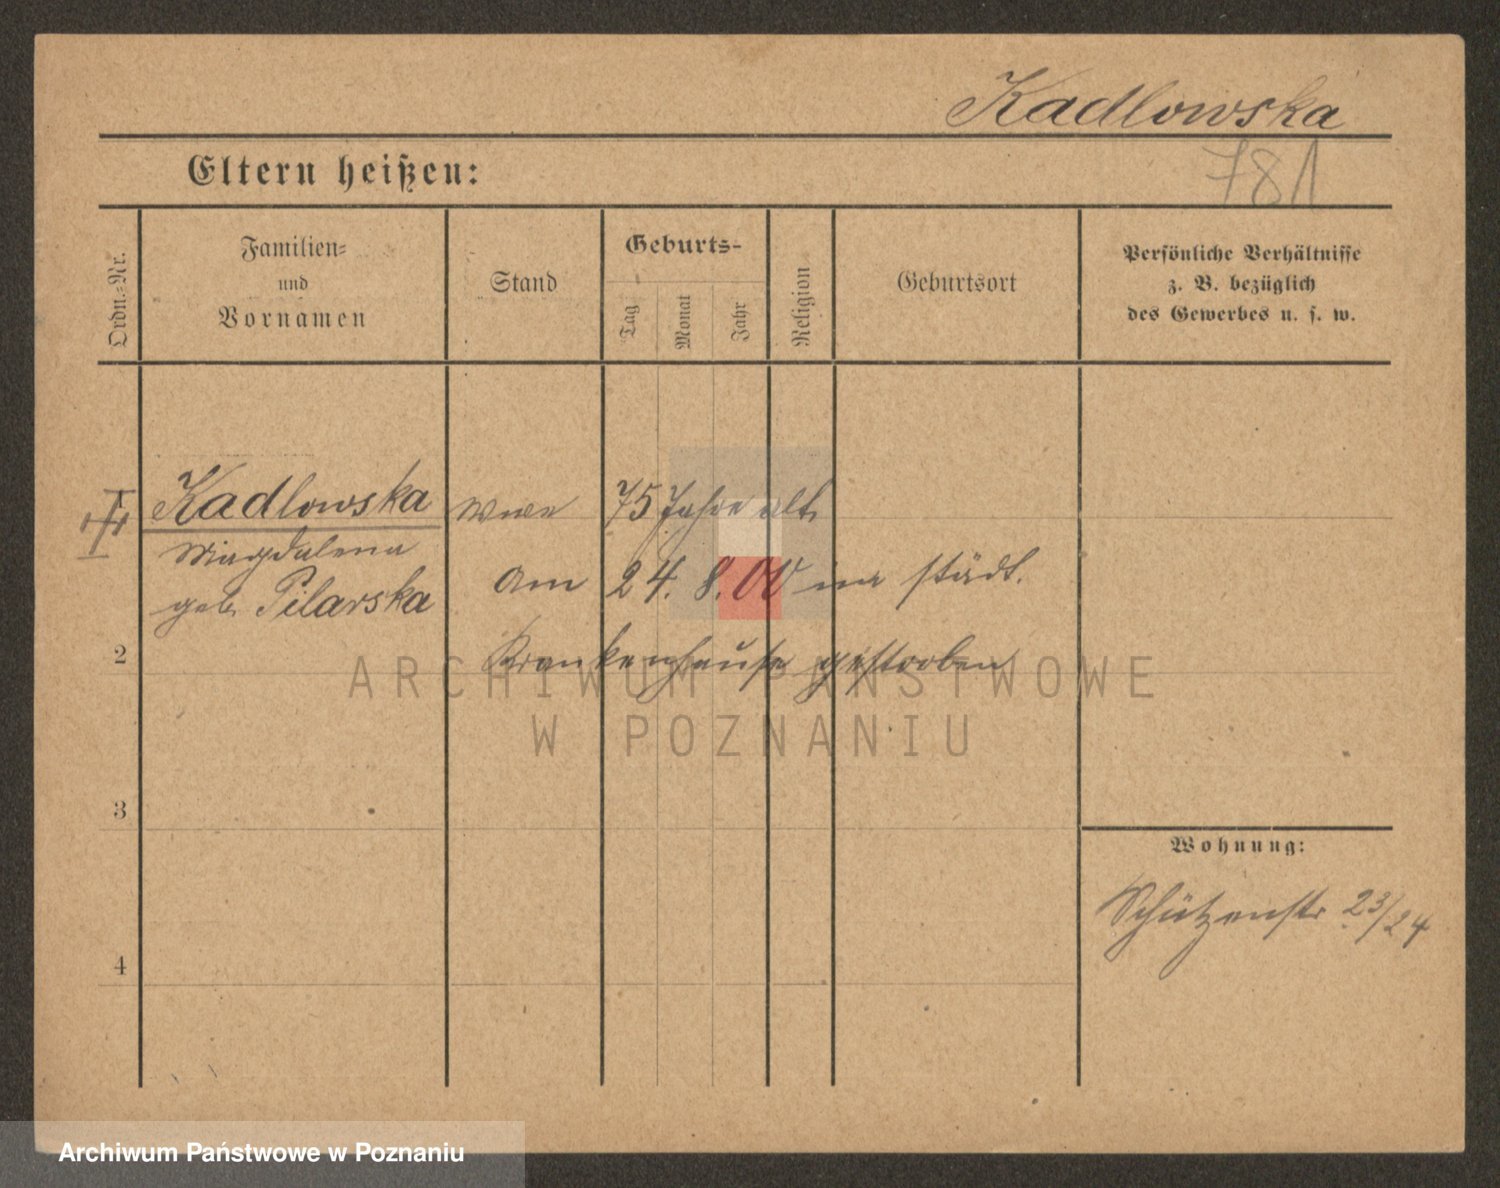 Kadlowska
Eltern heißen:
781
Ordn.=Nr.
Familien=
und
Vornamen
Stand
Geburts-
Tag
Monat
Jahr
Religion
Geburtsort
Persönliche Verhältnisse
z. B. bezüglich
des Gewerbes u. s. w.
1 Kadlowska Wwe 75 Jahre alt
Magdalena
am 24. 8. 00 im städt.
geb. Pilarska
2 Krankenhause gestorben
ARCHIWUM PAŃSTWOWE
W POZNANIU
3
Wohnung:
Schützenstr 23/24
4
Archiwum Państwowe w Poznaniu